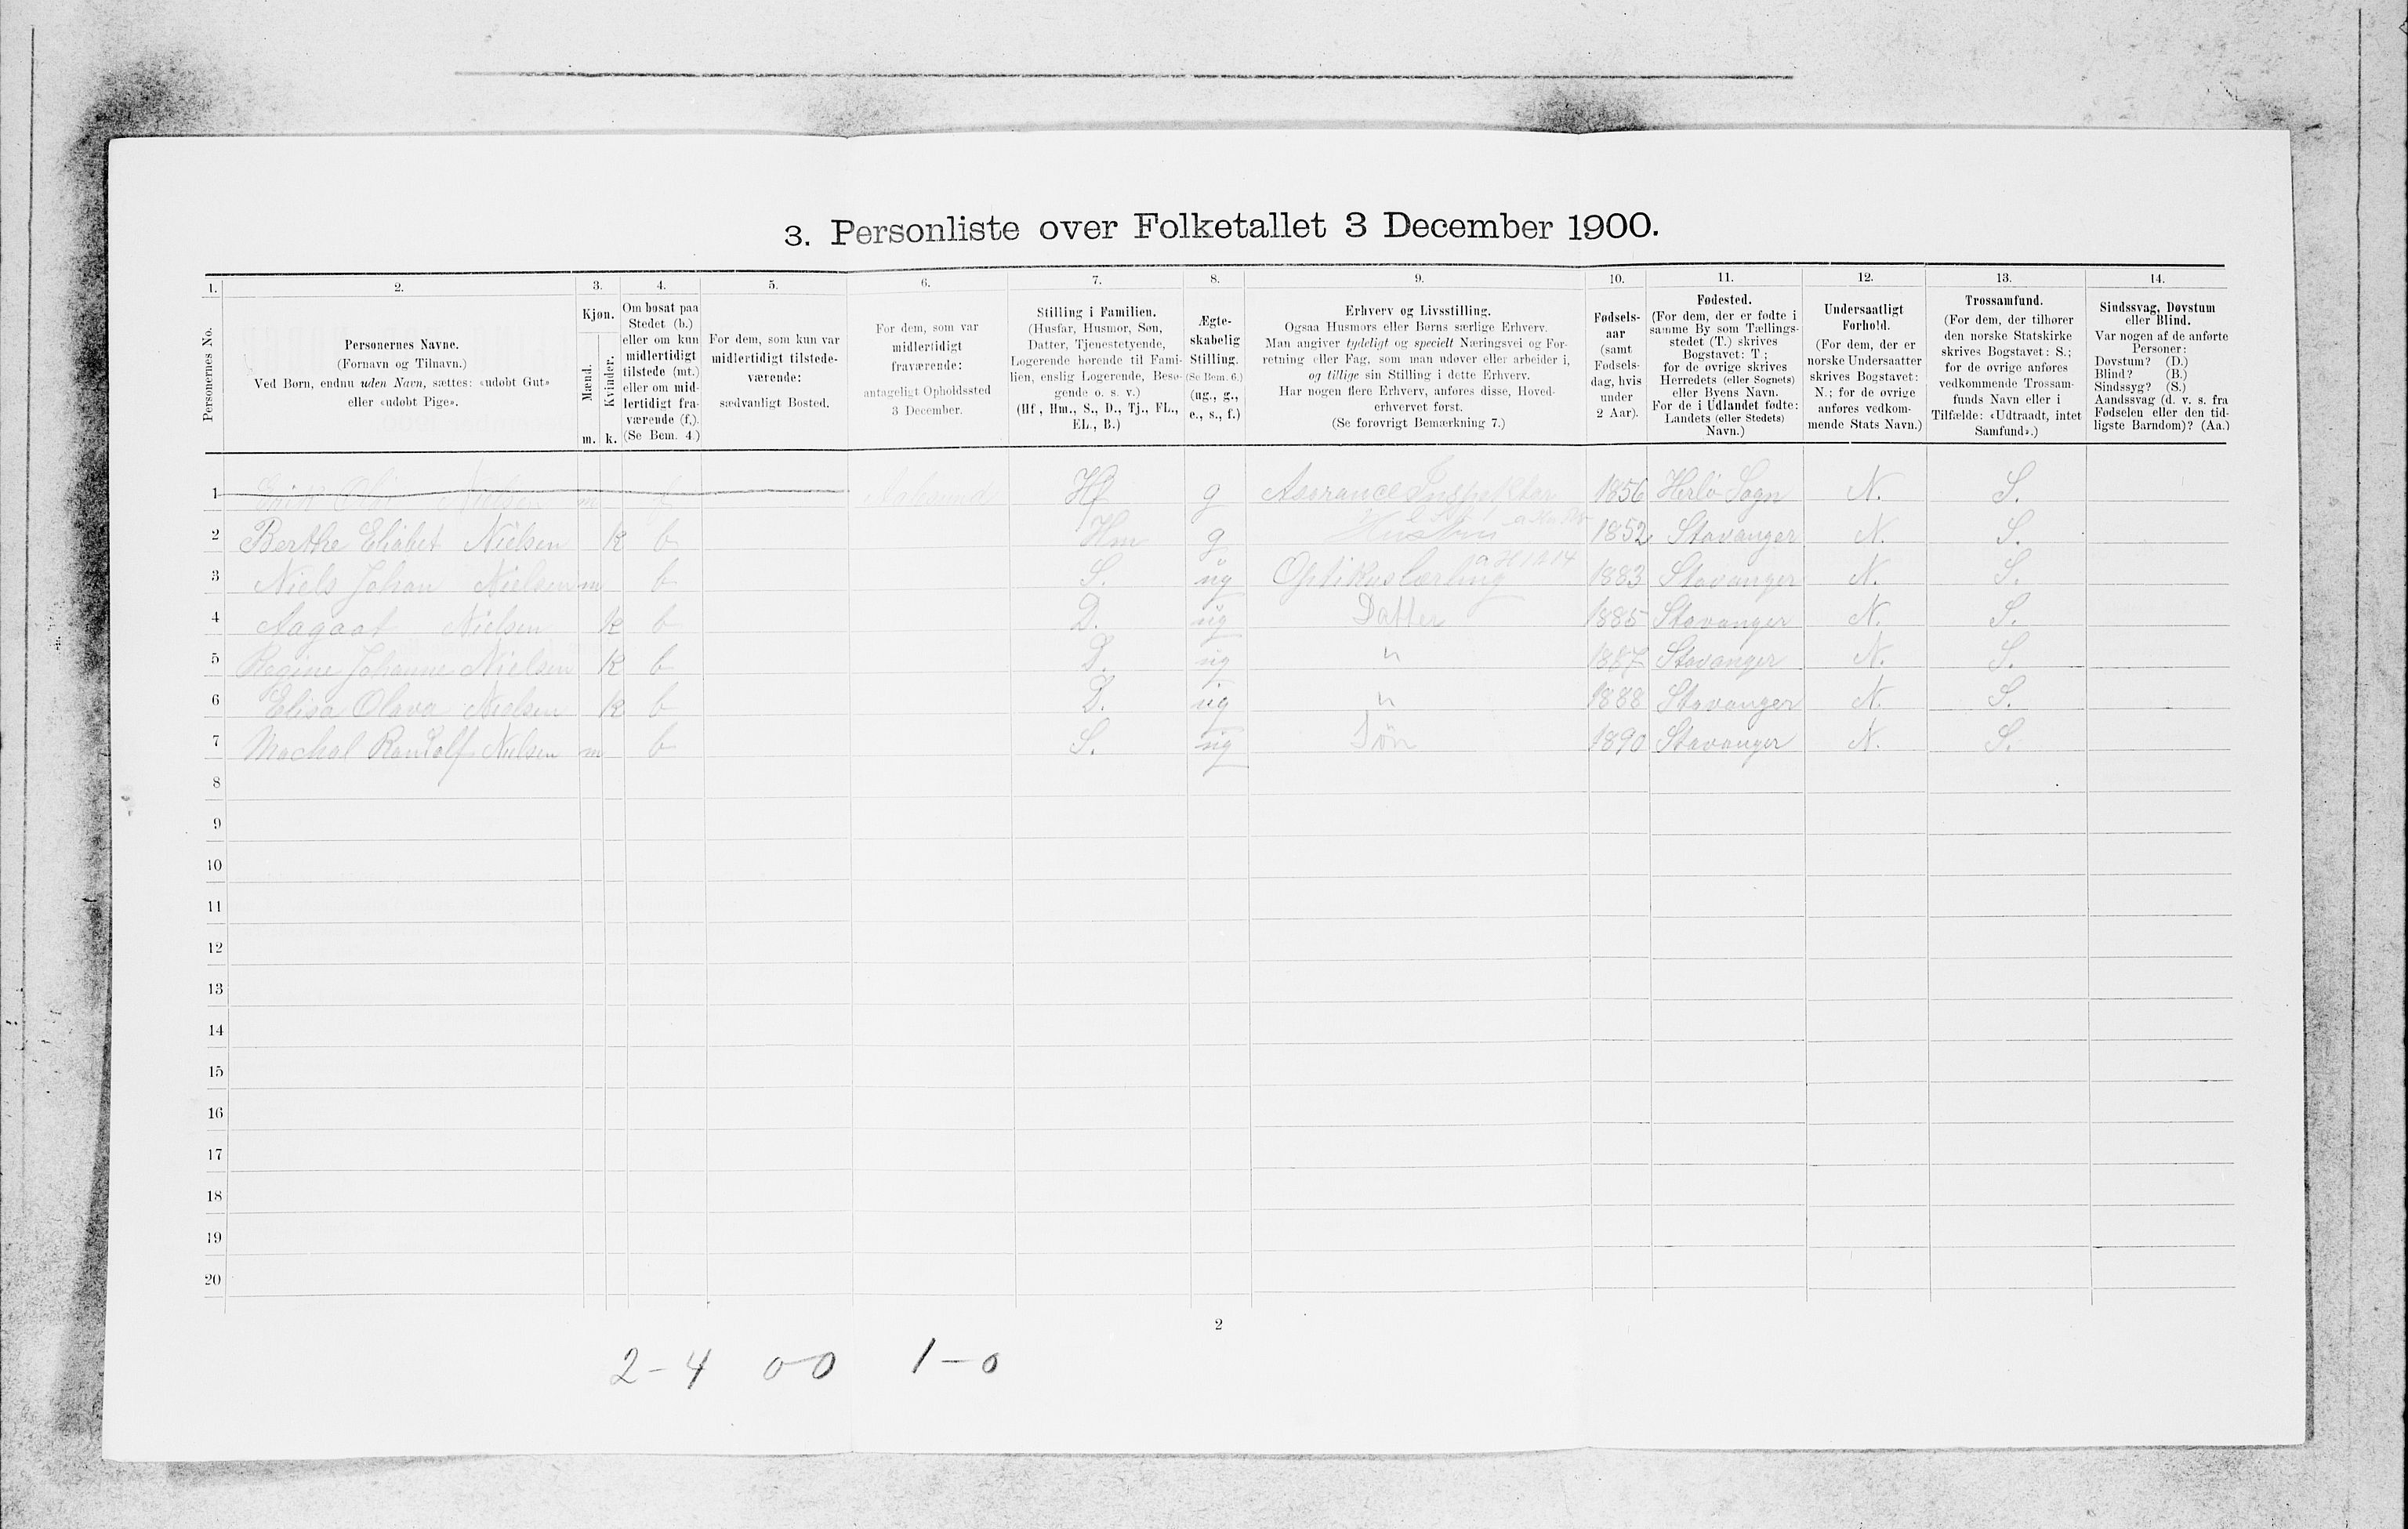 3. Personliste over Folketallet 3 December 1900.
1. 2. 3. 4. 5. 6. 7. 8. 9. 10. 11. 12. 13. 14.
Personernes No.
Personernes Navne.
(Fornavn og Tilnavn.)
Ved Børn, endnu uden Navn, sættes: «udøbt Gut»
eller «udøbt Pige».
Kjøn.
Mænd.
Kvinder.
m. k.
Om bosat paa
Stedet (b.)
eller om kun
midlertidigt
tilstede (mt.)
eller om mid-
lertidigt fra-
værende (f.).
(Se Bem. 4.)
For dem, som kun var
midlertidigt tilstede-
værende:
sædvanligt Bosted.
For dem, som var
midlertidigt
fraværende:
antageligt Opholdssted
3 December.
Stilling i Familien.
(Husfar, Husmor, Søn,
Datter, Tjenestetyende,
Logerende hørende til Fami-
lien, enslig Logerende, Besø-
gende o. s. v.)
(Hf., Hm., S., D., Tj., FL.,
EL., B.)
Ægte-
skabelig
Stilling.
(Se Bem. 6.)
(ug., g.,
e., s., f.)
Erhverv og Livsstilling.
Ogsaa Husmors eller Børns særlige Erhverv.
Man angiver tydeligt og specielt Næringsvei og For-
retning eller Fag, som man udøver eller arbeider i,
og tillige sin Stilling i dette Erhverv.
Har nogen flere Erhverv, anføres disse, Hoved-
erhvervet først.
(Se forøvrigt Bemærkning 7.)
Fødsels-
aar
(samt
Fødsels-
dag, hvis
under
2 Aar).
Fødested.
(For dem, der er fødte i
samme By som Tællings-
stedet (T.) skrives
Bogstavet: T.;
for de øvrige skrives
Herredets (eller Sognets)
eller Byens Navn.
For de i Udlandet fødte:
Landets (eller Stedets)
Navn.)
Undersaatligt
Forhold.
(For dem, der er
norske Undersaatter
skrives Bogstavet:
N.; for de øvrige
anføres vedkom-
mende Stats Navn.)
Trossamfund.
(For dem, der tilhører
den norske Statskirke
skrives Bogstavet: S.;
for de øvrige anføres
vedkommende Trossam-
funds Navn eller i
Tilfælde: «Udtraadt, intet
Samfund».)
Sindssvag, Døvstum
eller Blind.
Var nogen af de anførte
Personer:
Døvstum? (D.)
Blind? (B.)
Sindssyg? (S.)
Aandssvag (d. v. s. fra
Fødselen eller den tid-
ligste Barndom)? (Aa.)
1 m f Hf g Assurance Inspektør 1856 Herlö Sogn N. S.
2 Berthe Elisabet Nielsen k b Hm g Hustru 1852 Stavanger N. S.
3 Niels Johan Nielsen m b S. ug Optikuslærling 1883 Stavanger N. S.
4 Aagaat Nielsen k b D. ug Datter 1885 Stavanger N. S.
5 Regine Johanne Nielsen k b D. ug " 1887 Stavanger N. S.
6 Elisa Olava Nielsen k b D. ug " 1888 Stavanger N. S.
7 Machal Randolf Nielsen m b S. ug Søn 1890 Stavanger N. S.
8
9
10
11
12
13
14
15
16
17
18
19
20
2
2-4 0-0 1-0